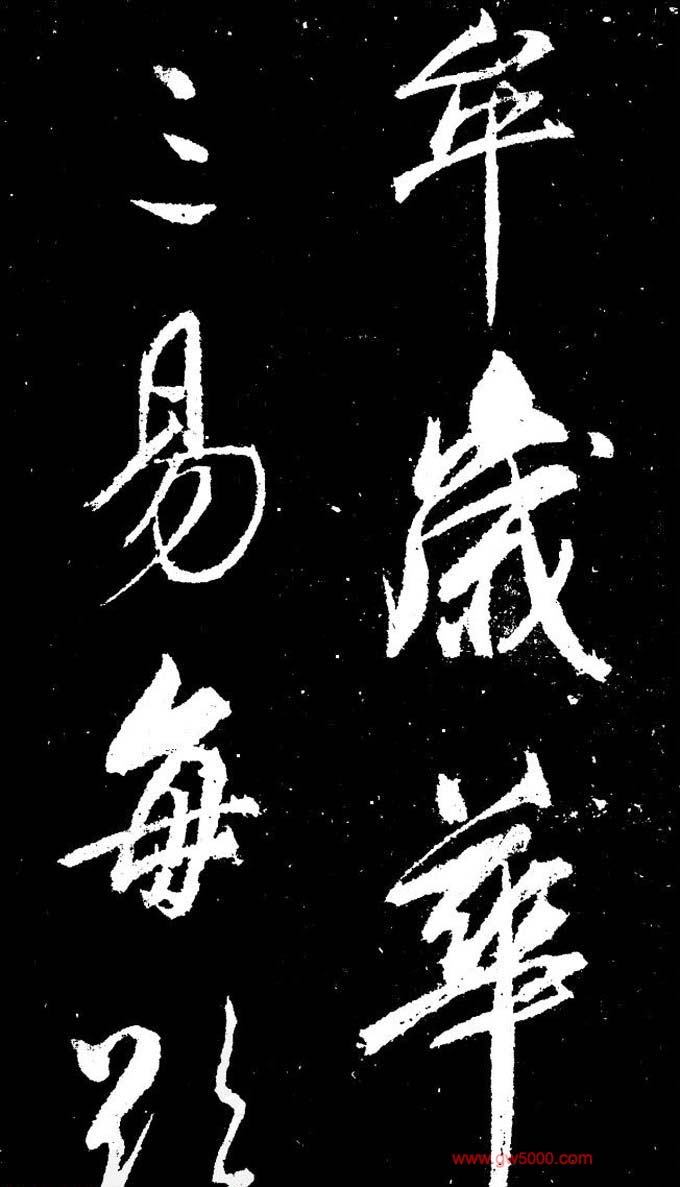 年歲華
三易每
www.gw5000.com